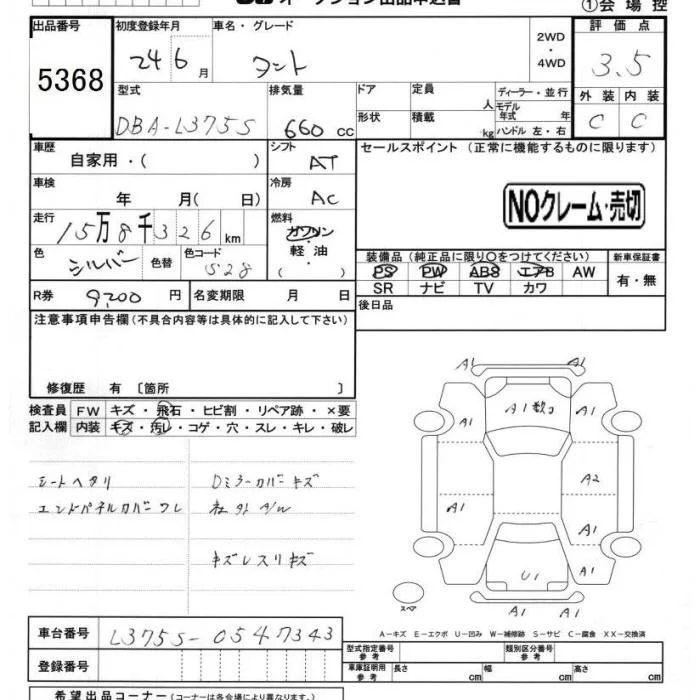 オークション出品申込書
①会場控
出品番号 初度登録年月 車名・グレード 2WD・4WD 評価点
5368 24 6月 タント 3.5
型式 排気量 ドア 定員 人 ディーラー・並行 外装 内装
DBA-L375S 660 cc 形状 積載 kg モデル年式 年 ハンドル 左・右 C C
車歴 自家用・( ) シフト AT セールスポイント (正常に機能するものに限ります)
車検 年 月( 日) 冷房 AC
NOクレーム・売切
走行 15万8千326km 燃料 ガソリン・軽油 ( )
色 シルバー 色替 色コード S28
装備品 (純正品に限り〇をつけてください) 新車保証書
PS PW ABS エアB AW 有・無
SR ナビ TV カワ
R券 9200円 名変期限 月 日 後日品
注意事項申告欄 (不具合内容等は具体的に記入して下さい)
修復歴 有 〔箇所 〕
検査員 FW キズ・飛石・ヒビ割・リペア跡・×要
記入欄 内装 キズ・汚レ・コゲ・穴・スレ・キレ・破レ
シートヘタリ Dミラーカバーキズ
エンドパネルカバーワレ 社外A/W
キズレスリキズ
A1 A1
A1
A1
A2
A1 A1
A1
U1 A1
A1 A1
スペア
A-キズ E-エクボ U-凹み W-補修跡 S-サビ C-腐食 XX-交換済
車台番号 L375S-0547343
登録番号
型式指定番号 参考 類別区分番号 参考
車庫証明用 参考 長さ cm 幅 cm 高さ cm
希望出品コーナー (コーナーは各会場により異なります。)